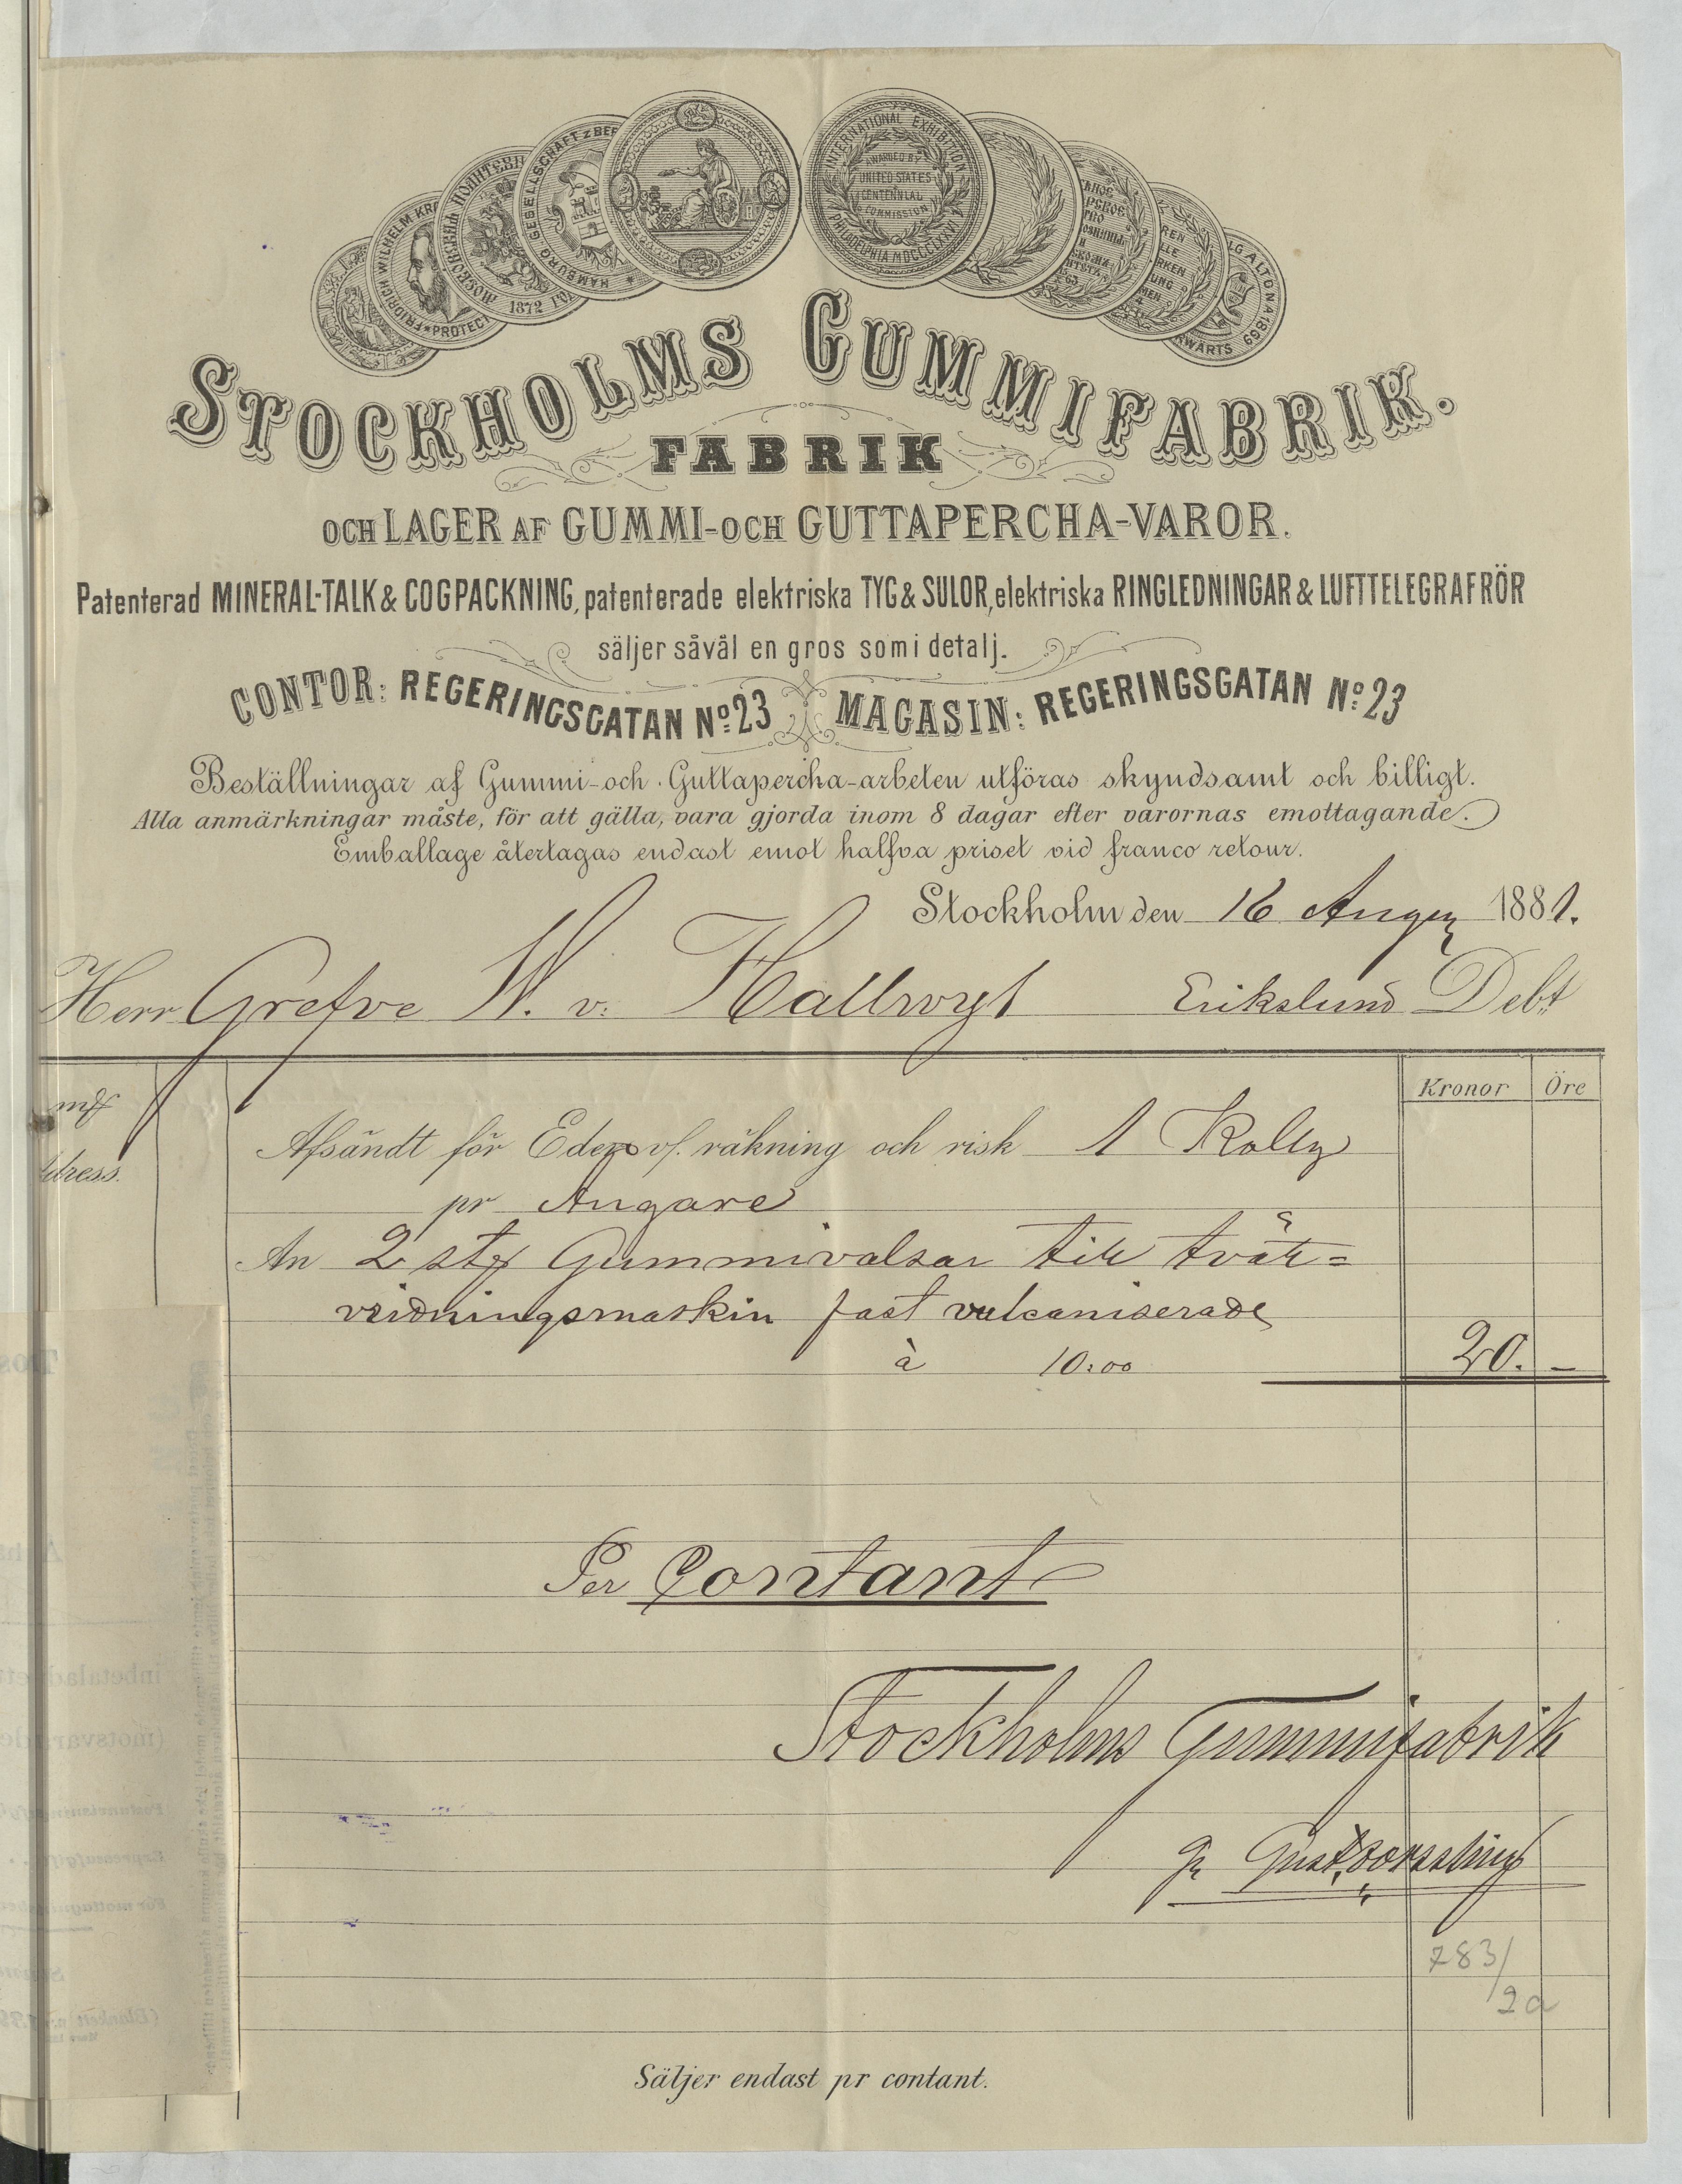 FRIDRICH WILHELM KR
PROTECT
1872
HAMBURG GESELLSCHAFT Z BEF
INTERNATIONAL EXHIBITION
PHILADELPHIA MDCCCLXXVI
AWARDED BY
UNITED STATES
CENTENNIAL
COMMISSION
REN
LLE
RKEN
UNG
MEN
LG ALTONA 1869
RWÄRTS
STOCKHOLMS GUMMIFABRIK.
FABRIK
OCH LAGER AF GUMMI-OCH GUTTAPERCHA-VAROR.
Patenterad MINERAL-TALK & COGPACKNING, patenterade elektriska TYG & SULOR, elektriska RINGLEDNINGAR & LUFTTELEGRAFRÖR
säljer såväl en gros som i detalj.
CONTOR: REGERINGSGATAN No 23 MAGASIN: REGERINGSGATAN No 23
Beställningar af Gummi-och Guttapercha-arbeten utföras skyndsamt och billigt.
Alla anmärkningar måste, för att gälla, vara gjorda inom 8 dagar efter varornas emottagande.
Emballage återtagas endast emot halfva priset vid franco retour.
Stockholm den 16 Aug 1881.
Herr Grefve W. v. Hallwyl Erikslund Debt
Kronor Öre
dress.
Afsändt för Eder räkning och risk 1 Kolly
pr Ångare
An 2 st Gummivalsar till tvätt=
vridningsmaskin fast vulcaniserade
à 10:00 20. –
Per Contant
Stockholms Gummifabrik
783/
2a
Säljer endast pr contant.